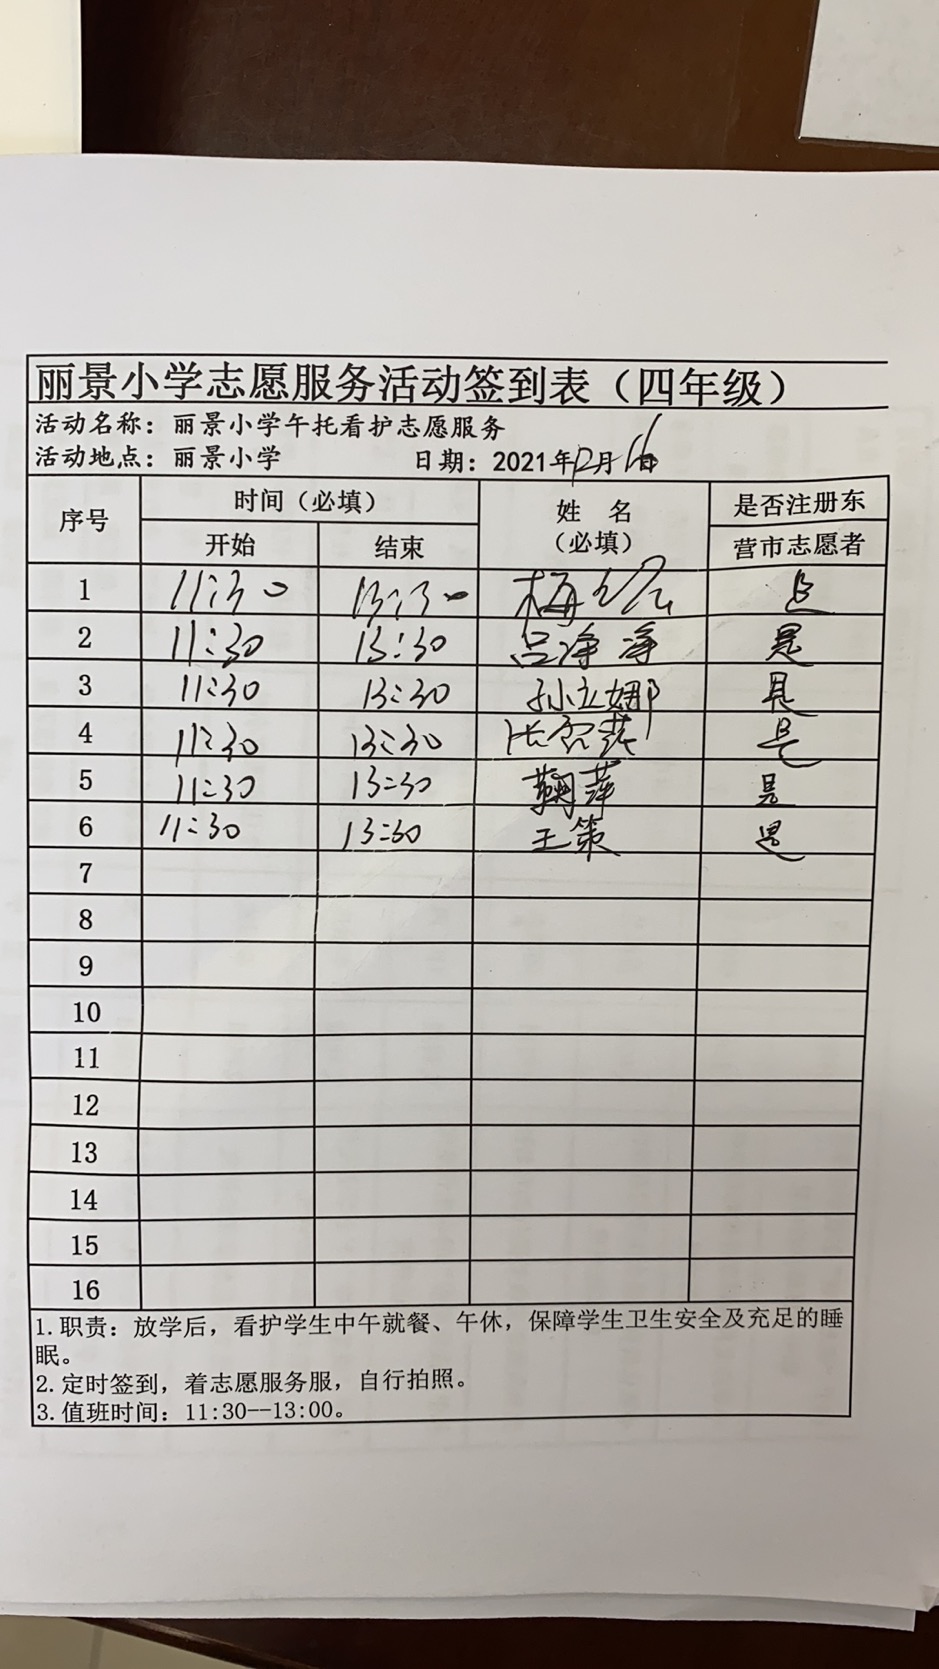 丽景小学志愿服务活动签到表（四年级）
活动名称：丽景小学午托看护志愿服务
活动地点：丽景小学 日期：2021年12月16日
序号 时间（必填） 姓 名（必填） 是否注册东营市志愿者
开始 结束
1 11:30 13:30 梅 是
2 11:30 13:30 吕净净 是
3 11:30 13:30 孙立娜 是
4 11:30 13:30 是
5 11:30 13:30 鞠萍 是
6 11:30 13:30 王策 是
7
8
9
10
11
12
13
14
15
16
1.职责：放学后，看护学生中午就餐、午休，保障学生卫生安全及充足的睡
眠。
2.定时签到，着志愿服务服，自行拍照。
3.值班时间：11:30--13:00。